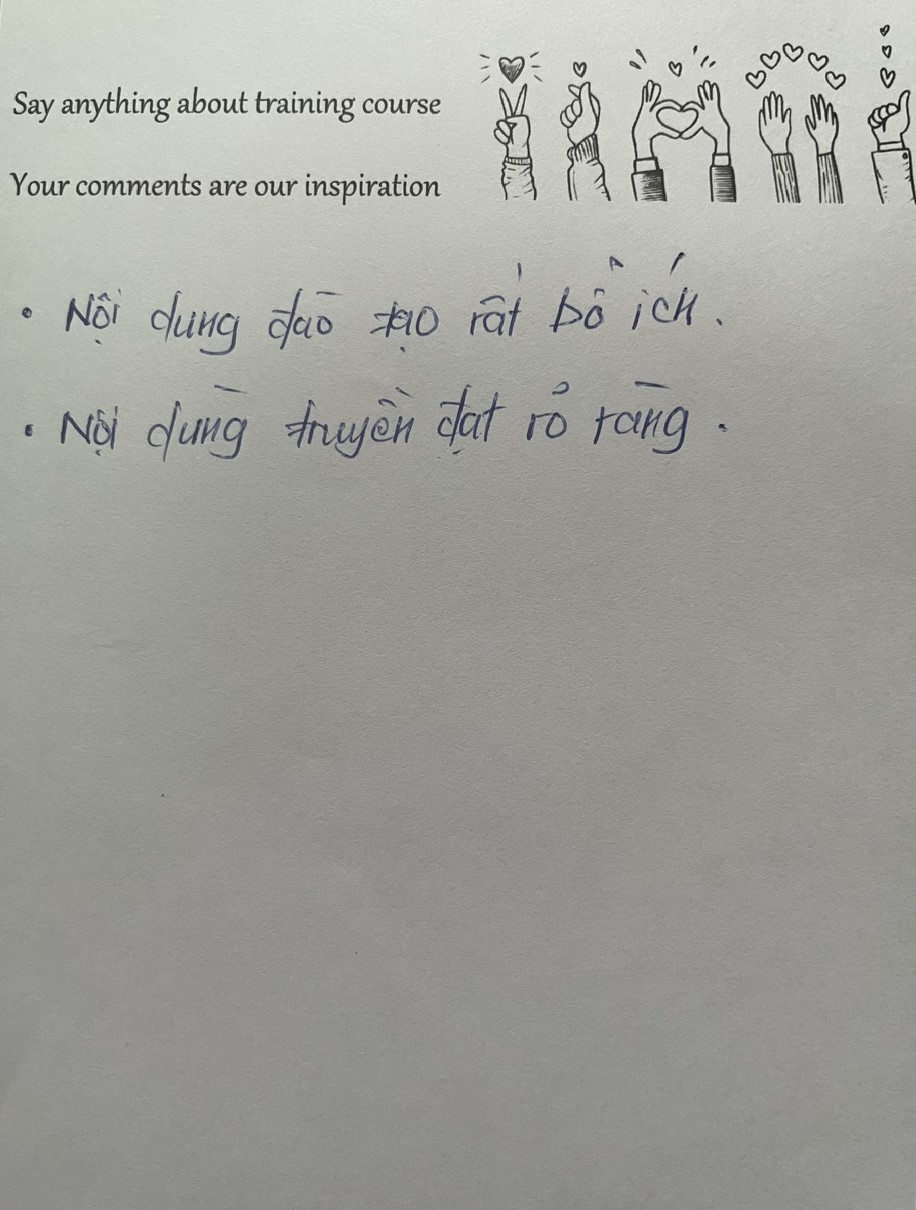 Say anything about training course
Your comments are our inspiration
• Nội dung đào tạo rất bổ ích.
• Nội dung truyền đạt rỏ ràng.